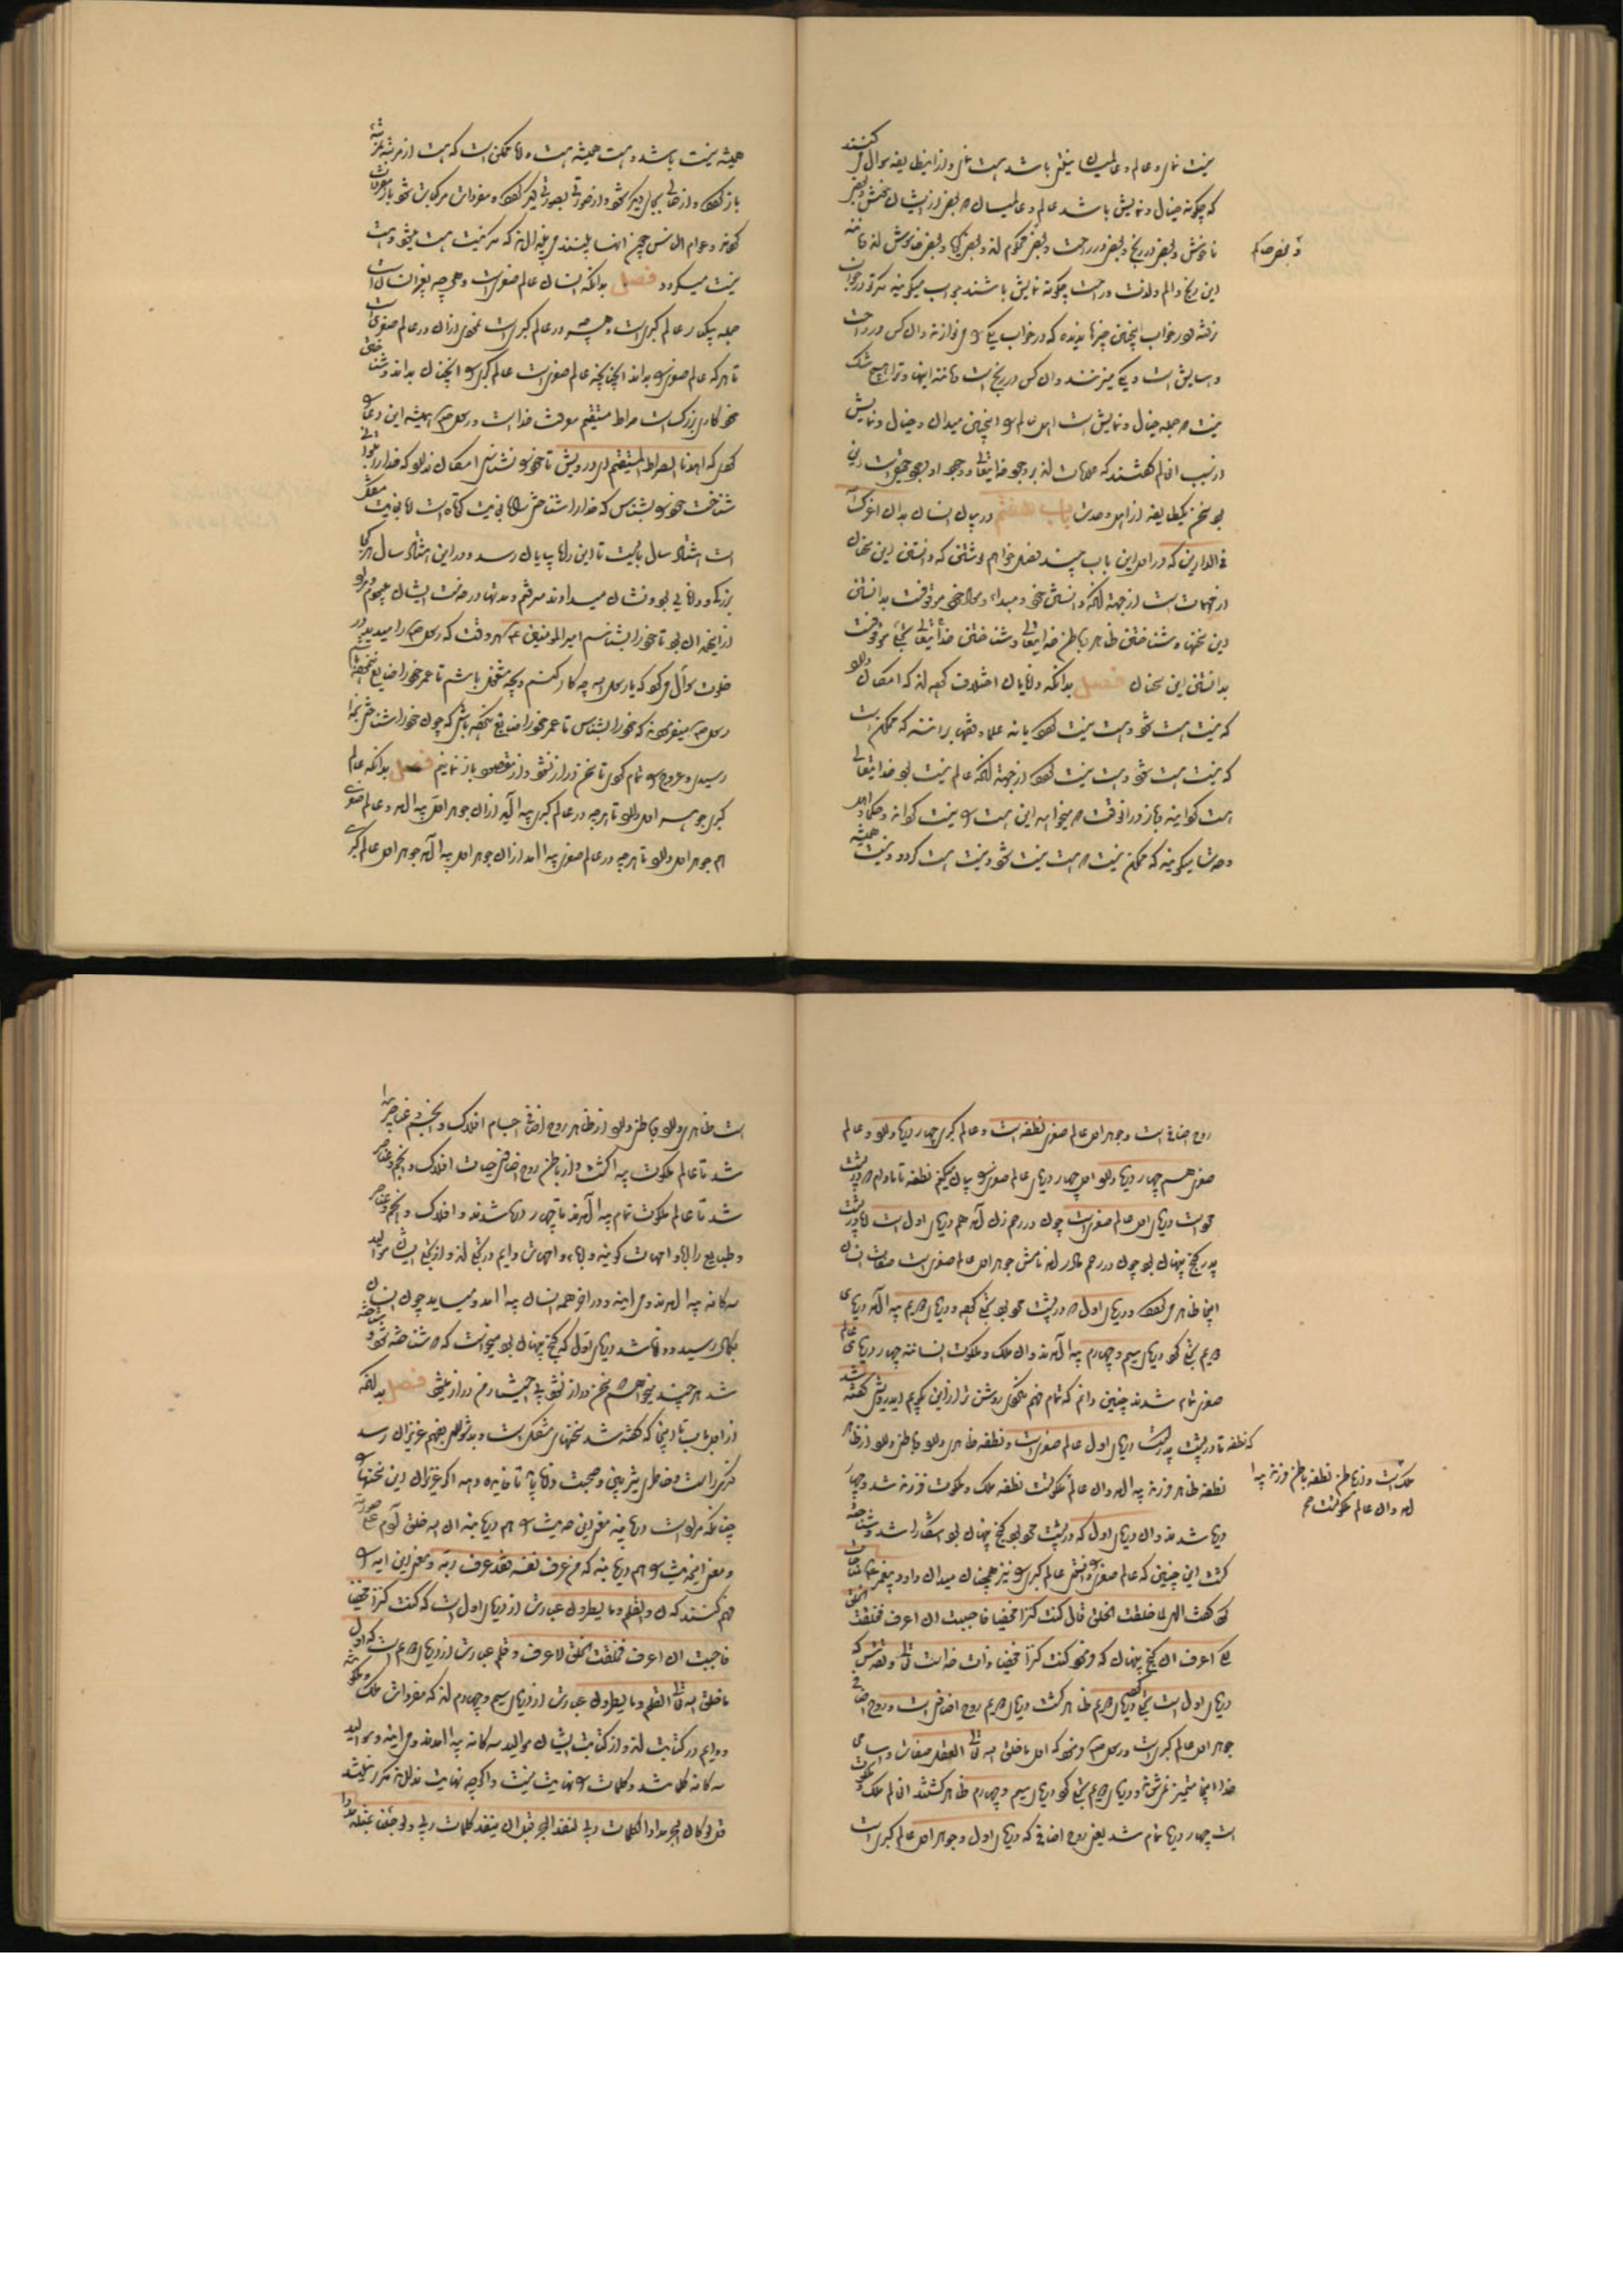 نیست نمای و عالم و عالمیان نیستی باشد هست نمای و از این طایفه سوال می کنند
که چگونه خیال و نمایش باشد عالم و عالمیان که بعضی ازیشان خوش و بعضی
ناخوش و بعضی در رنج و بعضی در راحت و بعضی محکوم اند و بعضی گویا و بعضی خاموش اند
و بعضی حاکم
این رنج و الم و لذت و راحت چگونه نمایش باشند جواب میگویند که تو در خواب
نرفته و در خواب اینچنین چیزها ندیده که در خواب یکی را می نوازند و آن کس در راحت
و آسایش است و یکی را میزنند و آن کس در رنج است و ترا هیچ شک
نیست که جمله خیال و نمایش است این عالم را اینچنین میدان و خیال و نمایش
بود سخن یکطایفه از اهل وحدت باب هفتم در بیان انسان بدان اعزک الله
فی الدارین که در اول این باب چند فصل خواهم نوشتن که دانستن این سخنان
از مهمات است از جهة آنکه دانستن خود و مبداء و معاد خود موقوفست بدانستن
این سخنها و شناختن ظاهر و باطن خدایتعالی و شناختن خدایتعالی
بدانستن این سخنان فصل بدانکه دانایان اختلاف کرده اند که امکان دارد
که نیست هست شود و هست نیست گردد یا نه علما و فقها برانند که ممکن است
که نیست هست شود و هست نیست گردد از جهة آنکه عالم نیست بود خدایتعالی
هست گردانید و باز در آن وقت که میخواهد این هست را نیست گرداند و حکما و اهل
وحدت میگویند که ممکن نیست که هست نیست شود و نیست هست گردد و نیست همیشه
همیشه نیست باشد و هست همیشه هست و اما ممکن است که هست از مرتبه بمرتبه
باز گردد و از حالی بحال دیگر شود و از صورتی بصورتی دیگر گردد و مفردات مرکب شود
گردند و عوام الناس چون اینها ببینند که نیست هست میشود و هست
نیست میگردد فصل بدانکه انسان عالم صغری است و هر چه بغیر انسان است
جمله بیکبار عالم کبری است و هر چه در عالم کبری است نمودار آن در عالم صغری است
تا هر که عالم صغری را بداند اینچنانکه عالم صغری است عالم کبری را اینچنان بداند و شناختن
خود کاری بزرگ است صراط مستقیم معرفت خدا است و رسول ص همیشه این دعا
کردی که اهدنا الصراط المستقیم ای درویش تا خود را نشناسی امکان ندارد که خدا را
شناخت خود را بشناس که خدا را شناختی
است هشتاد سال بایست تا این راه بپایان رسد و در این هشتاد سال هر کجا
بزرگی و دانایی بود و نشان میدادند میرفتم و مدتها در خدمت ایشان
از این همه آن بود تا خود را بشناسم امیر المومنین ع هر وقت که رسول ص را میدید در
خلوت سوال می کرد که یا رسول الله چه کار کنم و بچه مشغول باشم تا عمر خود را ضایع
رسول ص میفرمود که خود را بشناس تا عمر خود را ضایع نکرده باشی که چون خود را شناختی بخدا
رسیدی و عروج را تمام کردی تا سخن دراز نشود و از مقصود باز نمانیم فصل بدانکه عالم
کبری جوهر اول دارد تا هر چه در عالم کبری پیدا آید از آن جوهر اول پیدا آید و عالم صغری
هم جوهر اول دارد تا هر چه در عالم صغری پیدا آمد از آن جوهر اول پیدا آمد جوهر اول عالم کبری
روح اضافی است و جوهر اول عالم صغری نطفه است و عالم کبری چهار دریا دارد و عالم
صغری هم چهار دریا دارد اول چهار دریای عالم صغری را بیان میکنیم نطفه تا مادام که در پشت
پدر است دریای اول عالم صغری است چون در رحم زن آمد هم دریای اول است
پدر گنج پنهان بود چون در رحم مادر آمد نامش جوهر اول عالم صغری است صفات انسان
اینجا ظاهر می گردد دریای اول که در پشت محو بود تجلی کرد و دریای دویم پیدا آمد دریای
دویم تجلی کرد دریای سیم و چهارم پیدا آمدند و آن ملک و ملکوت انسانند چهار دریای عالم
صغری تمام شدند چنین دانم که تمام فهم نکردی روشن تر از این بگویم ای درویش گفته شد
که نطفه تا در پشت پدر است دریای اول عالم صغری است و نطفه ظاهری دارد و باطنی دارد از ظاهر
نطفه ظاهر فرزند پیدا آمد و آن عالم ملکست نطفه ملک و ملکوت فرزند شد و چهار
ملک است و از باطن نطفه باطن فرزند پیدا
آمد و آن عالم ملکوتست صح
دریا شدند و آن دریای اول که در پشت محو بود گنج پنهان بود آشکارا شد و شناخته
گشت این چنین که عالم صغری را دانستی عالم کبری را نیز همچنان میدان داود پیغمبر ع مناجات
کرد گفت الهی لماذا خلقت الخلق قال کنت کنزا مخفیا فاحببت ان اعرف فخلقت الخلق
لکی اعرف آن گنج پنهان که فرمود کنت کنزا مخفیا ذات خدا است تعالی و تقدس که
دریای اول است تجلی کرد دریای دویم ظاهر گشت دریای دویم روح اضافی است و روح اضافی
جوهر اول عالم کبری است و رسول ص فرمود که اول ما خلق الله تعالی العقل صفات و اسامی
خدا اینجا متمیز نمی شوند و دریای دویم تجلی کرد دریای سیم و چهارم ظاهر گشتند این عالم ملک و ملکوت
است چهار دریا تمام شد یعنی روح اضافی که دریای اول و جوهر اول عالم کبری است
است ظاهری دارد و باطنی دارد از ظاهر روح اضافی اجسام افلاک و انجم و عناصر پیدا
شد تا عالم ملکوت پیدا گشت و از باطن روح اضافی حیات افلاک و انجم و عناصر
شد تا عالم ملکوت تمام پیدا آمدند تا چهار دریا شدند و افلاک و انجم و عناصر
و طبایع را آباء و امهات گویند و آباء و امهات دایم در تجلی اند و از تجلی ایشان موالید
سه گانه پیدا آمدند و می آیند و در آخر همه انسان پیدا آمد و میباید چون انسان
بکمال رسید دانا شد دریای اول که گنج پنهان بود میخواست که شناخته شود شناخته
شد هر چند میخواهم سخن دراز نشود بی اختیار من دراز میشود فصل بدانکه
از اول باب تا اینجا که گفته شد سخنهای مشکل است و بدشواری بفهم عزیزان رسد
چنانکه مراد است دریابند معنی این حدیث را هم دریابند ان الله خلق آدم علی صورته
و معنی این حدیث را هم دریابند که من عرف نفسه فقد عرف ربه و معنی این آیه را
فهم کنند که ن والقلم وما یسطرون عبارت از دریای اول است که کنت کنزا مخفیا
فاحببت ان اعرف فخلقت الخلق لاعرف و قلم عبارت از دریای دویم است که اول
ما خلق الله تعالی القلم وما یسطرون عبارت از دریای سیم و چهارم اند که مفردات ملک و ملکوتند
و دایم در کتابت اند و از کتابت ایشان موالید سه گانه پیدا آمدند و می آیند و موالید
سه گانه کلمات شد و کلمات را نهایت نیست و اگرچه نهایت ندارند مکرر نیستند
قل لو کان البحر مدادا لکلمات ربی لنفد البحر قبل ان تنفد کلمات ربی ولو جئنا بمثله مددا